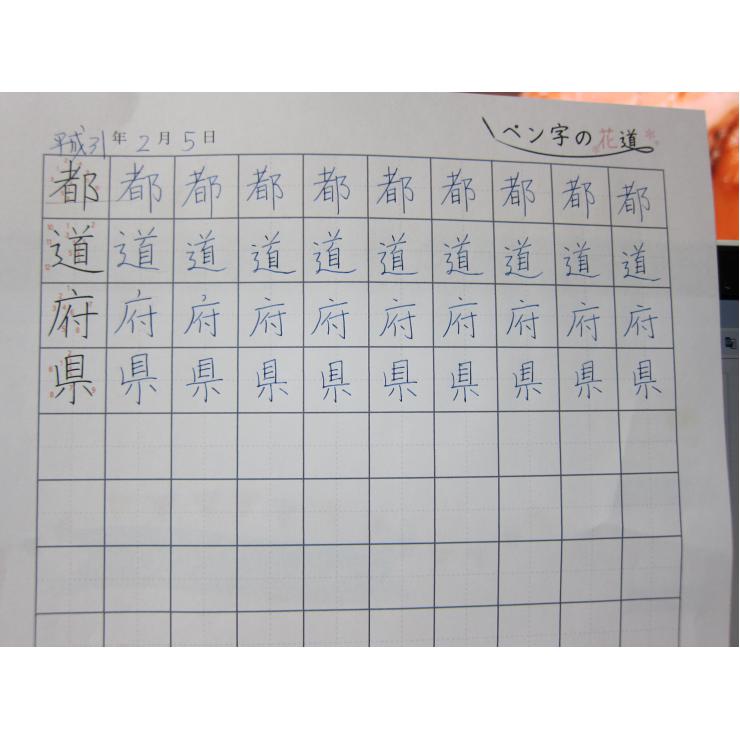 平成31年2月5日
ペン字の花道
都都都都都都都都都都
道道道道道道道道道道
府府府府府府府府府府
県県県県県県県県県県